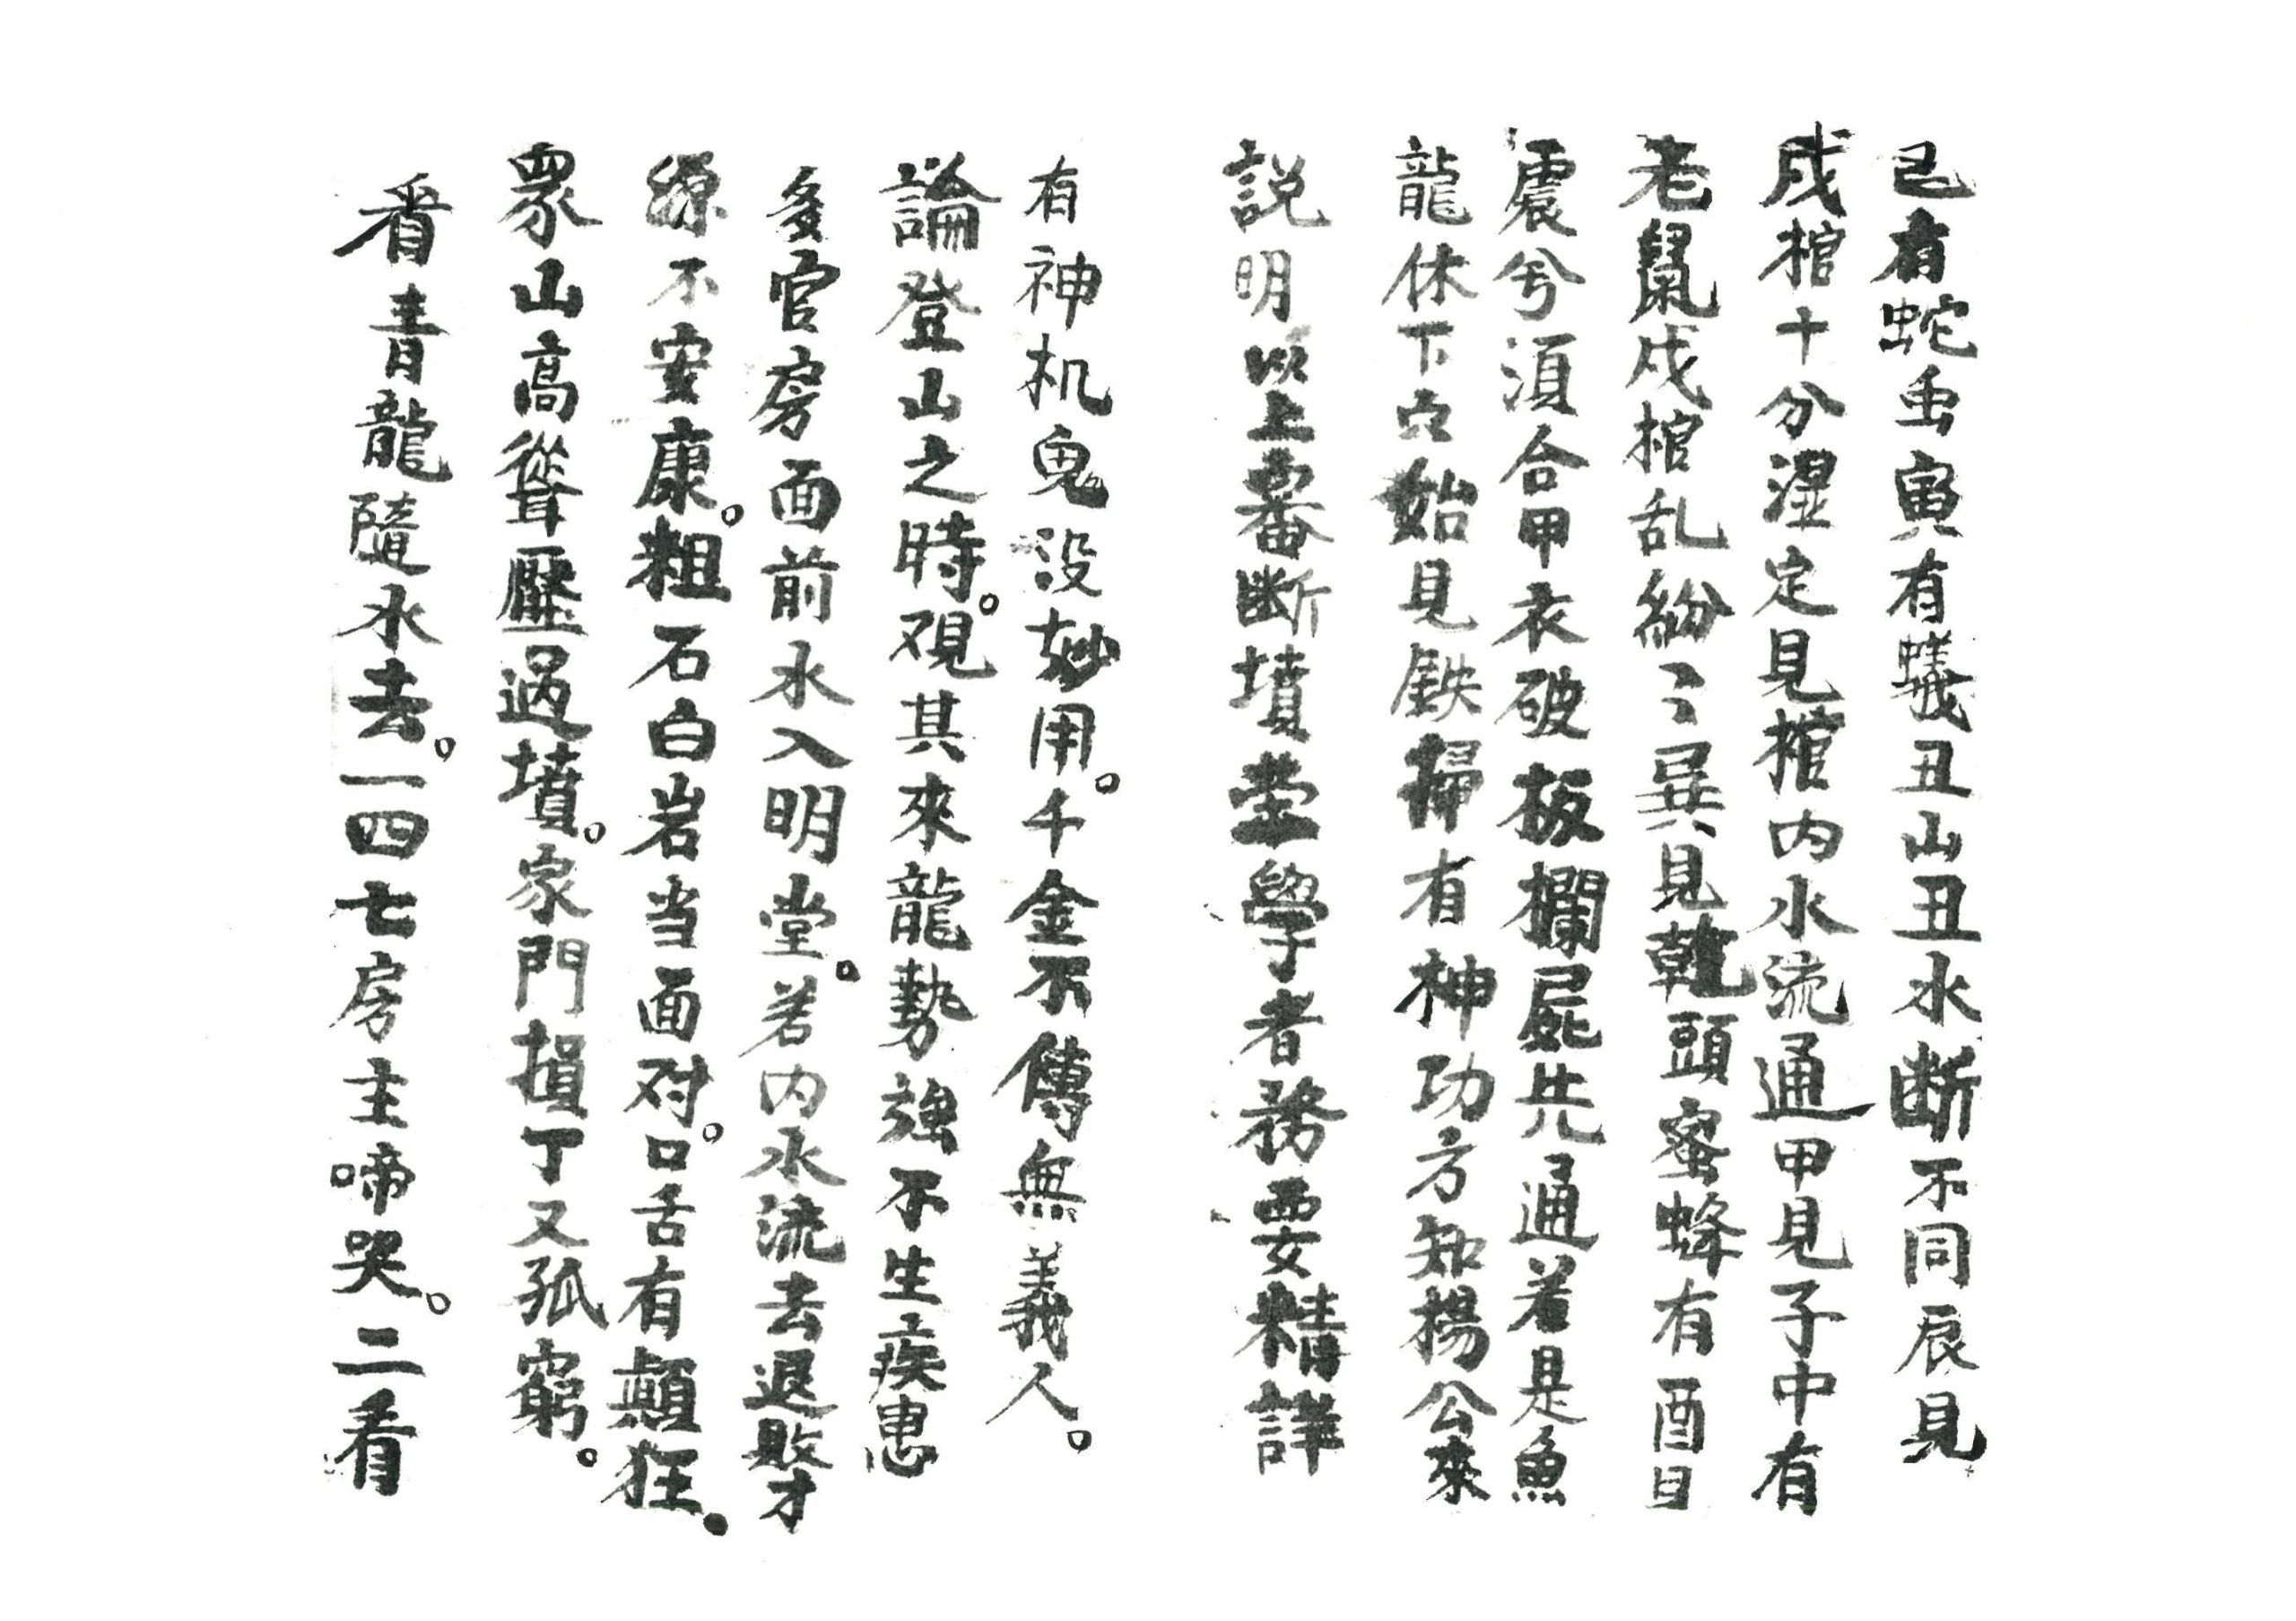 已有蛇虫寅有蟻丑山丑水断不同辰見
戌棺十分湿定見棺内水流通甲見子中有
老鼠戌棺乱紛々巽見乾頭蜜蜂有酉日
震兮須合甲衣破板欄屍先通若是魚
龍休下穴始見鉄掃有神功方知楊公來
説明以上審断墳塋學者務要精詳
有神机鬼没妙用。千金不傳無義人。
論登山之時。視其來龍勢強不生疾患
多官房面前水入明堂。若内水流去退敗才
源不安康。粗石白岩当面对。口舌有顛狂。
眾山高聳壓過墳。家門損丁又孤窮。
看青龍隨水去。一四七房主啼哭。二看